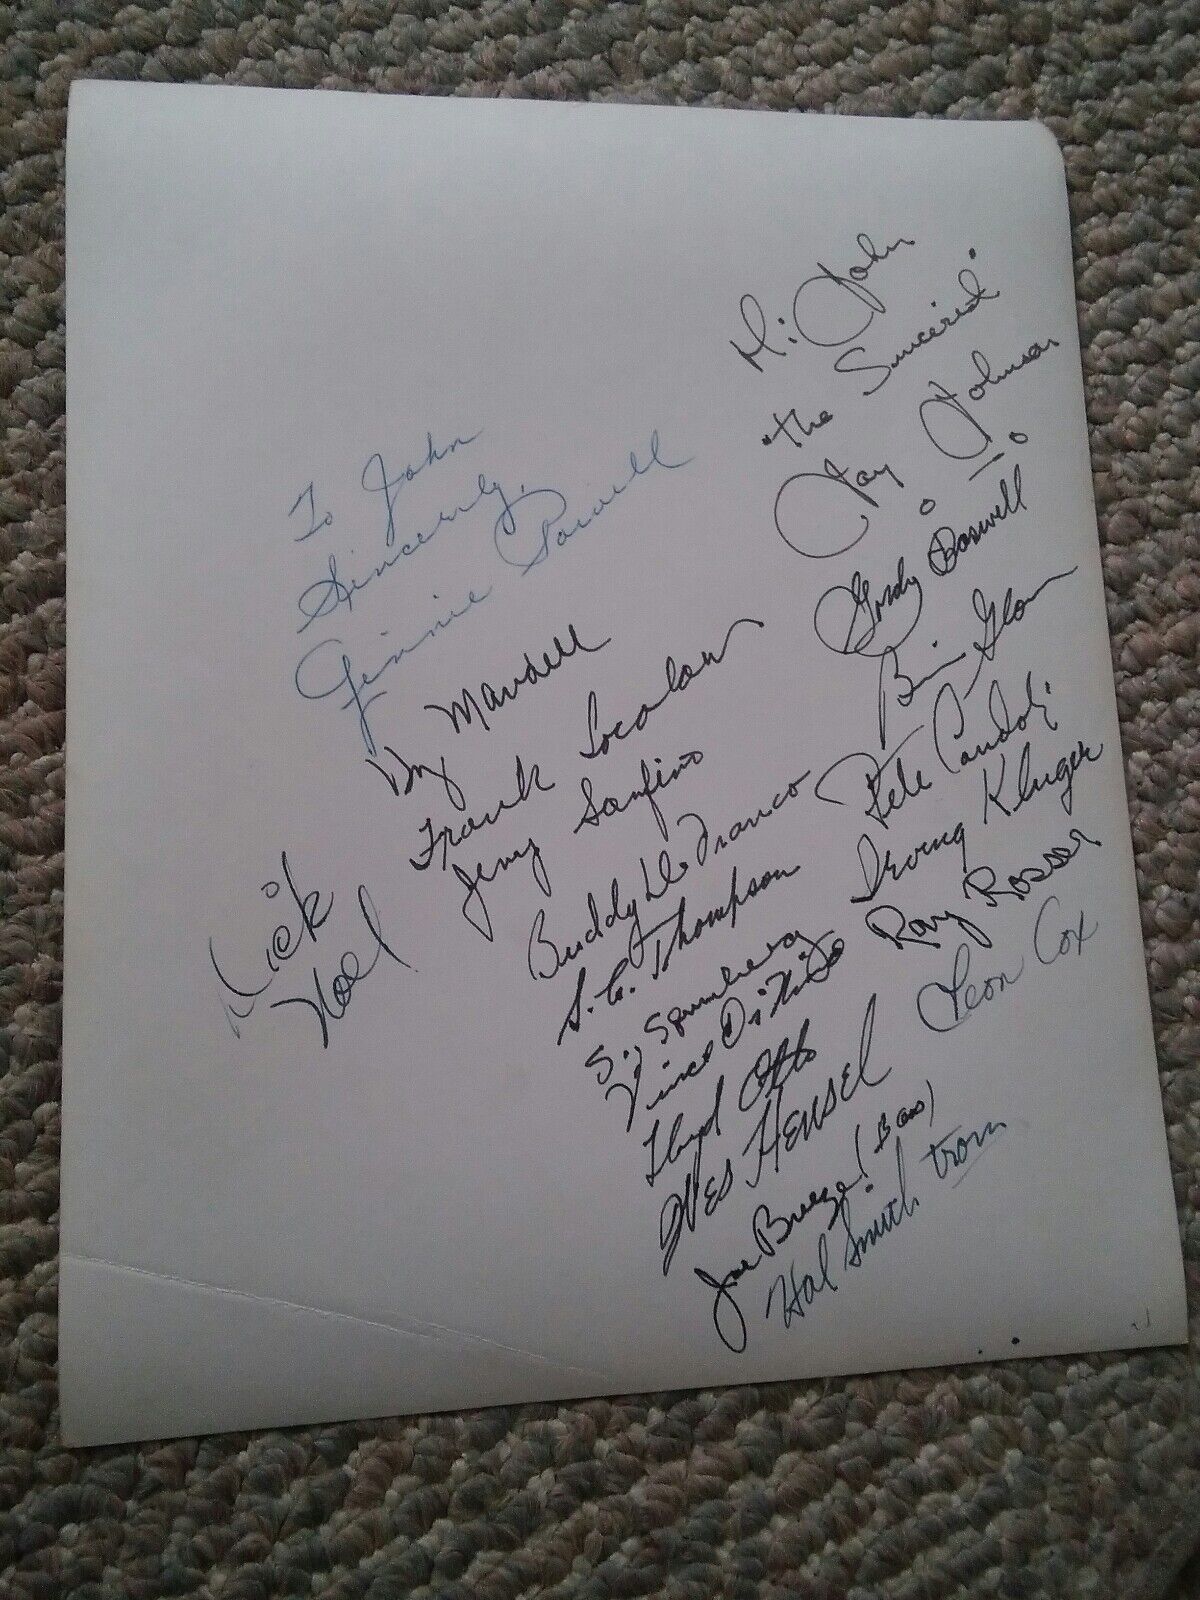 Hi John
"the Sincerest"
Jay Johnson
To John
Sincerely,
Ginnie Powell
Gordy Boswell
Hy Mandell
Frank Socolow
Pete Candoli
Jerry Sanfino
Irving Kluger
Buddy De Franco
Ray Rosser
S. C. Thompson
Leon Cox
Dick
Noel
Sy
Vince
Lloyd Otto
Wes Hensel
Joe Breeze! (Bass)
Hal Smith trom